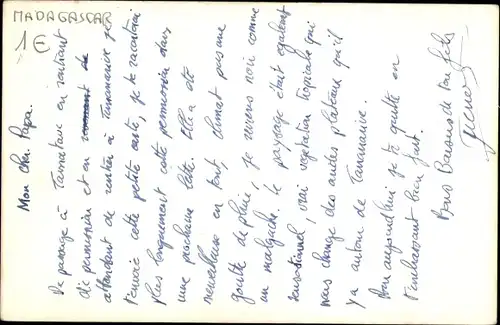 MADAGASCAR
1€
Mon Cher Papa.
De passage à Tamatave en rentrant
de permission et en
attendant de rentrer à Tananarive je
t'envoie cette petite carte, je te raconterai
plus longuement cette permission dans
une prochaine lettre. Elle a été
merveilleuse en tout, climat pas une
goutte de pluie, je reviens noir comme
un malgache, le paysage était également
sensationnel, vrai végétation tropicale qui
nous change des arides plateaux qu'il
y a autour de Tananarive.
Bon aujourd'hui je te quitte en
t'embrassant bien fort.
Bons Baisers de ton fils